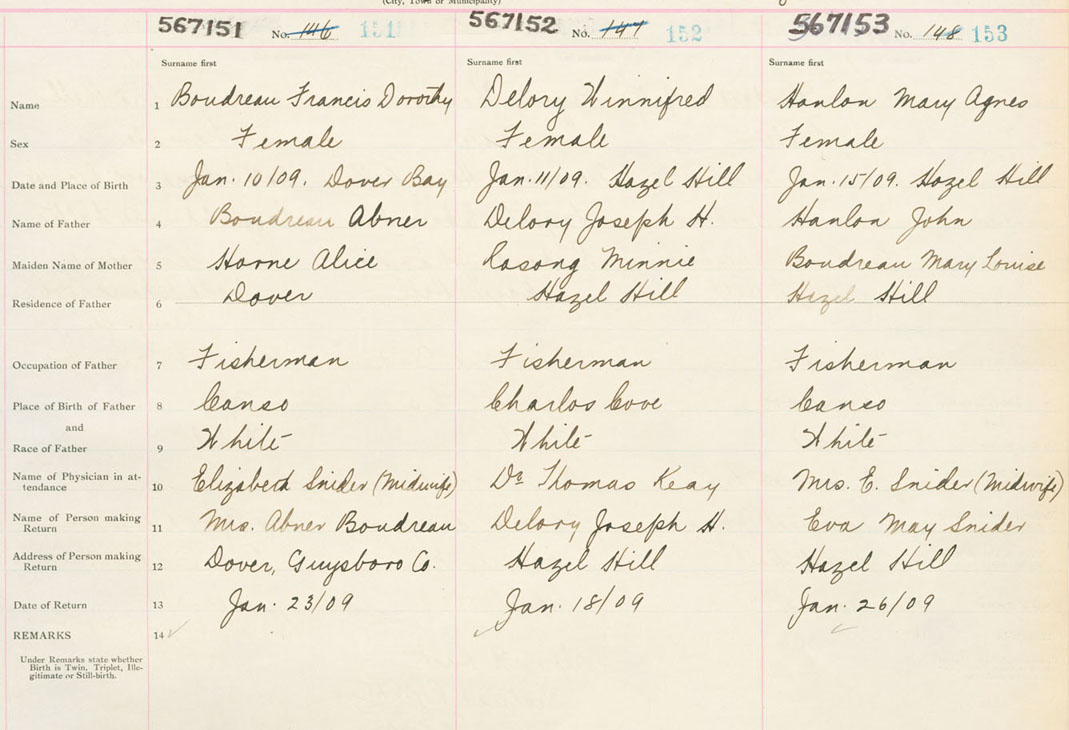 (City, Town or Municipality)
567151 No. 146 151 567152 No. 147 152 567153 No. 148 153
Surname first Surname first Surname first
Name 1 Boudreau Francis Dorothy Delory Winnifred Hanlon Mary Agnes
Sex 2 Female Female Female
Date and Place of Birth 3 Jan. 10/09. Dover Bay Jan. 11/09. Hazel Hill Jan. 15/09. Hazel Hill
Name of Father 4 Boudreau Abner Delory Joseph H. Hanlon John
Maiden Name of Mother 5 Horne Alice Rosong Minnie Boudreau Mary Louise
Residence of Father 6 Dover Hazel Hill Hazel Hill
Occupation of Father 7 Fisherman Fisherman Fisherman
Place of Birth of Father 8 Canso Charlos Cove Canso
and
Race of Father 9 White White White
Name of Physician in at-
tendance 10 Elizabeth Snider (Midwife) Dr. Thomas Keay Mrs. E. Snider (Midwife)
Name of Person making
Return 11 Mrs. Abner Boudreau Delory Joseph H. Eva May Snider
Address of Person making
Return 12 Dover, Guysboro Co. Hazel Hill Hazel Hill
Date of Return 13 Jan. 23/09 Jan. 18/09 Jan. 26/09
REMARKS 14
Under Remarks state whether
Birth is Twin, Triplet, Ille-
gitimate or Still-birth.